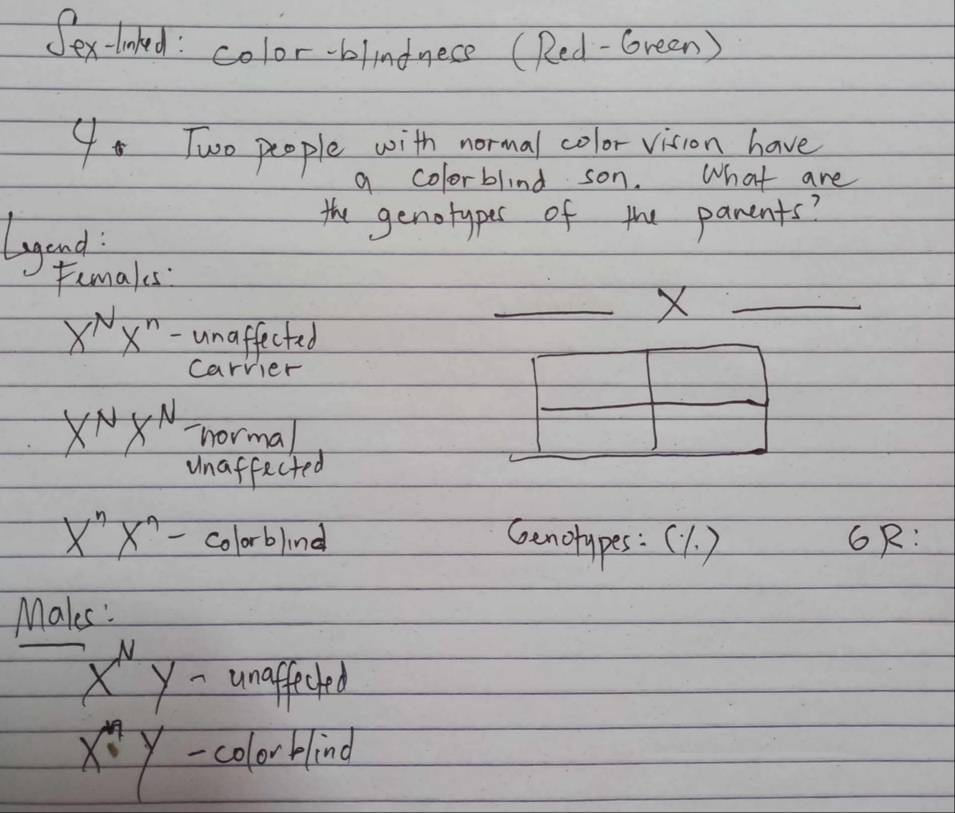 Sex-linked: color-blindness (Red-Green)
4. Two people with normal color vision have
a colorblind son. What are
the genotypes of the parents?
Legend:
Females:
X
Xᴺ Xⁿ - unaffected
carrier
Xᴺ Xᴺ - normal
unaffected
Xⁿ Xⁿ - colorblind
Genotypes: (%)
GR:
Males:
Xᴺ Y - unaffected
Xⁿ Y - colorblind